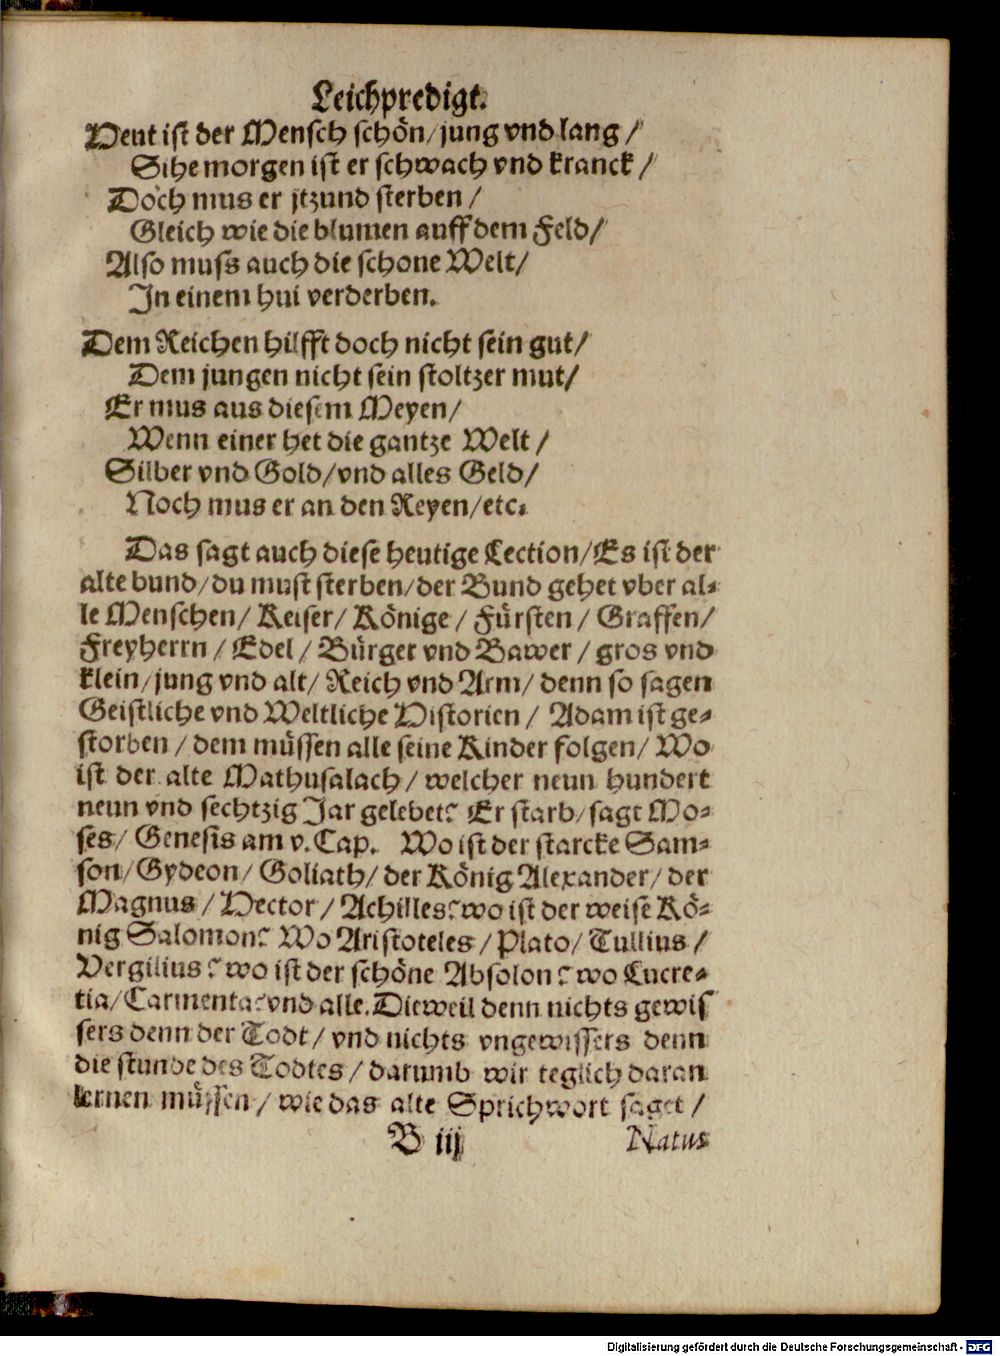 Leichpredigt.
Heut ist der Mensch schön/ jung vnd lang /
Sihe morgen ist er schwach vnd kranck /
Doch mus er jtzund sterben /
Gleich wie die blumen auff dem Feld/
Also muss auch die schone Welt/
In einem hui verderben.
Dem Reichen hilfft doch nicht sein gut/
Dem jungen nicht sein stoltzer mut/
Er mus aus diesem Meyen/
Wenn einer het die gantze Welt /
Silber vnd Gold/ vnd alles Geld/
Noch mus er an den Reyen/ etc.
Das sagt auch diese heutige Lection/ Es ist der
alte bund/ du must sterben/ der Bund gehet vber al-
le Menschen/ Keiser/ Könige / Fürsten / Graffen/
Freyherrn / Edel / Bürger vnd Bawer / gros vnd
klein/ jung vnd alt/ Reich vnd Arm/ denn so sagen
Geistliche vnd Weltliche Historien / Adam ist ge-
storben / dem müssen alle seine Kinder folgen/ Wo
ist der alte Mathusalach / welcher neun hundert
neun vnd sechtzig Jar gelebet? Er starb/ sagt Mo-
ses/ Genesis am v. Cap. Wo ist der starcke Sam-
son/ Gydeon/ Goliath/ der König Alexander/ der
Magnus / Hector / Achilles? wo ist der weise Kö-
nig Salomon? Wo Aristoteles / Plato/ Tullius /
Vergilius? wo ist der schöne Absolon? wo Lucre-
tia/ Carmenta? vnd alle. Dieweil denn nichts gewis
sers denn der Todt / vnd nichts vngewissers denn
die stunde des Todtes / darumb wir teglich daran
lernen müssen / wie das alte Sprichwort saget /
B iij
Natus
Digitalisierung gefördert durch die Deutsche Forschungsgemeinschaft - DFG